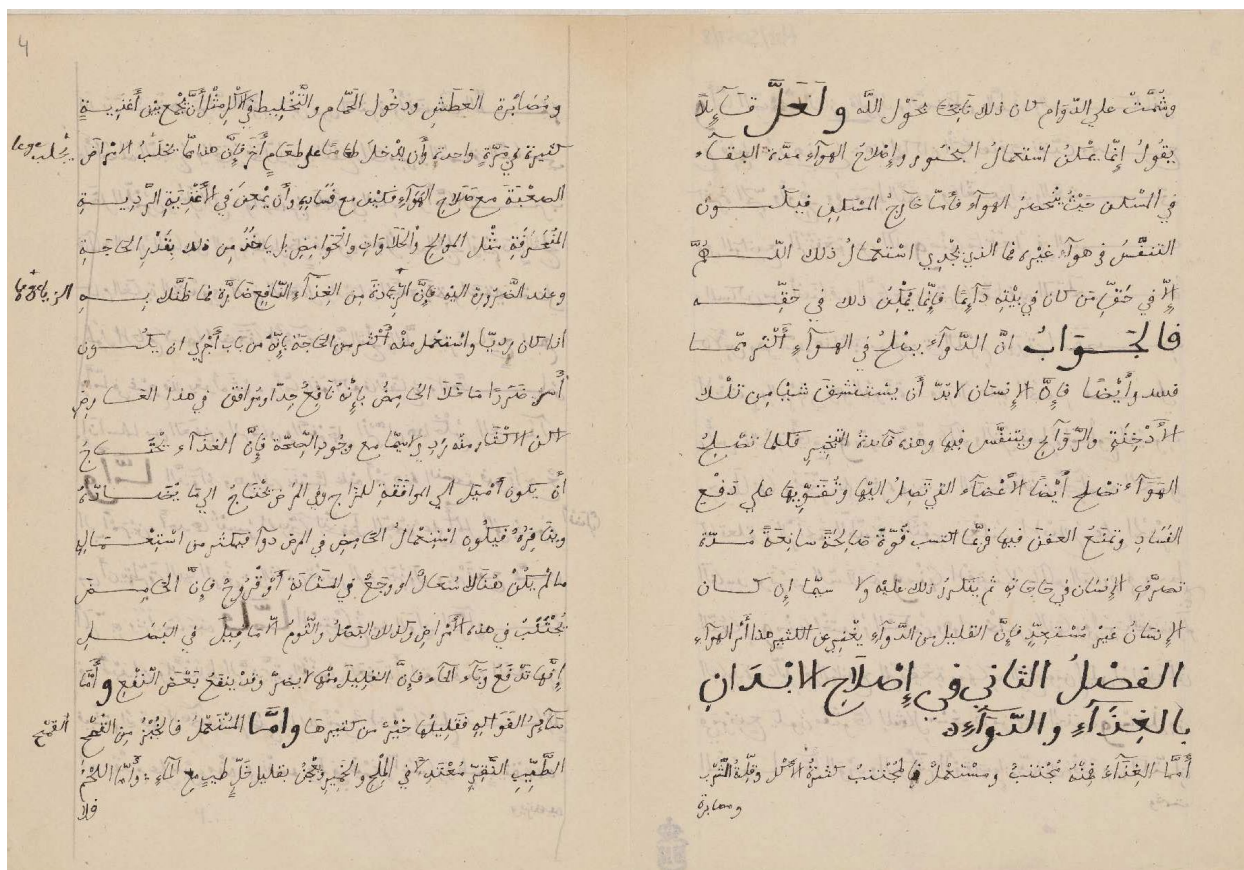 وشمّت علي الدّوام كان ذلك نافعا بحول اللّه ولَعَلَّ قَآئِلًا
يقولُ إنّما يمكنُ استعمالُ البخور وإصلاحُ الهوآء مدّة البقآء
في المسكن حيْثُ يُحْصَرُ الهوآء فأمّا خارجُ المسكن فيكون
التنفّسُ في هوآء غيْره فما الذي يُجْدِي اسْتعْمالُ ذلك اللّهُمَّ
إلّا في حقِّ مَن كان في بيْتِه دَآئِمًا فإنّما يُمْكِنُ ذلك في حَقِّه
فالجَوَابُ انّ الدّوآء يصْلحُ في الهوآء أكْثر ممّا
فسد وأيْضًا فإنَّ الإنسان لابدّ أن يستنشق شيئا من تلْك
الأدْخِنَةِ والرّوآئح ويتنفّس فيها وهذه فآئدةُ التبْخير فكلما تصْلحُ
الهَوَآء تصْلح أيْضًا الأعْضآء التي تَصِلُ اليْها وتُقَوّيها علي دَفْع
الفسَادِ وتمنَعُ العفنَ فيها فربّما اكتسب قُوّةً صَالِحَةً سَائِغَةً مُدّة
تصرُّفِ الإنسَان في حَاجَاتِهِ ثم يتكرّرُ ذلك عليْه ولا سيّما إن كان
الإنسَانُ غيْرُ مُسْتعِدٍّ فإنَّ القليل من الدّوآء يغْنِي عن الكثير هذا أمْر الهوآء
الفصْلُ الثاني في إصْلَاحِ الابْدَانِ
بالغِذَآءِ والدّوَآءِ
أمّا الغِذآءُ فمِنْهُ مُجْتنبٌ ومسْتعْملٌ فالمُجْتنبُ كثرةُ الأكْل وقلّةُ الشّرْب
ومصابرة
4
ومُصَابَرة العَطَشِ ودخُول الحَمّام والتّخْلِيط في الأكْل مثْل أنْ يجْمع بيْن أغْذِيَةٍ
كثيرة في مرَّة واحدة وأن يدْخلَ طعَامًا علي طعَامٍ أخر فإنَّ هذا ممّا يجْلبُ الامْرَاضَ
الصعْبَةَ مع صَلَاحِ الهَوآء فكيْف مع فسَاده وأن يُمْعِنَ في الأغْذِيَةِ الرَّدِيَةِ
مثْل الموالح والحَلَاوَاتِ والحَوامِضِ بل ياخذُ من ذلك بقَدْرِ الحَاجَةِ
وعند الضّرُورة اليْه فإنَّ الزّيَادَة من الغِذآء النّافِع ضَارّة فما ظنّك به
اذا كان رديّا واسْتعْمل منْه أكْثر من الحَاجَة فإنّه من باب أحْرَي ان يكُون
أشدّ ضَرَرًا مَا خَلَا الحَامِضُ فإنّهُ نَافِعٌ جدّا ومُوَافق في هذا العَارِضِ
لاكن الاكْثار منْه ردي لاسيّما مع وجُود الصّحّة فإنَّ الغذآء يحْتَاجُ
أنْ يكون أمْيَل الي الموافقَةِ للمِزَاج وفي المَرض يحْتاجُ الي مَا يُضَادّهُ
وينَافِرُهُ فيكون اسْتِعْمالُ الحَامِضِ في المرض دوآ فيكثر من اسْتِعْمالِهِ
مالمْ يكُنْ هنَالك سُعَالٌ او وجَعٌ في المَثَانَة أوْ قُرُوحٌ فإنَّ الحَامِضَ
يُجْتنَبُ في هذه الأمْراض وكذلك البَصَلُ والثّوم الّا مَا قيلَ في البَصَلِ
إنّها تدْفعُ وَبَآء المآء فإنَّ القليلَ منْها لايضرّ وقدْ ينفعُ بعْض النّفْع وأمَّا
سَآئِرُ الفوَاكِه فقَلِيلُها خيْرٌ من كثيرهَا وامَّا المُسْتعْملُ فالخُبْزُ مِن القَمْح
الطّيِّبِ النَّقِيِّ مُعْتَدِلًا في المِلْحِ والخَمِير ويُعْجَنُ بقليل خَلٍّ طيب مع المآء وأمّا اللّحْمُ
فلا
يجلب
الزيادة
القمح